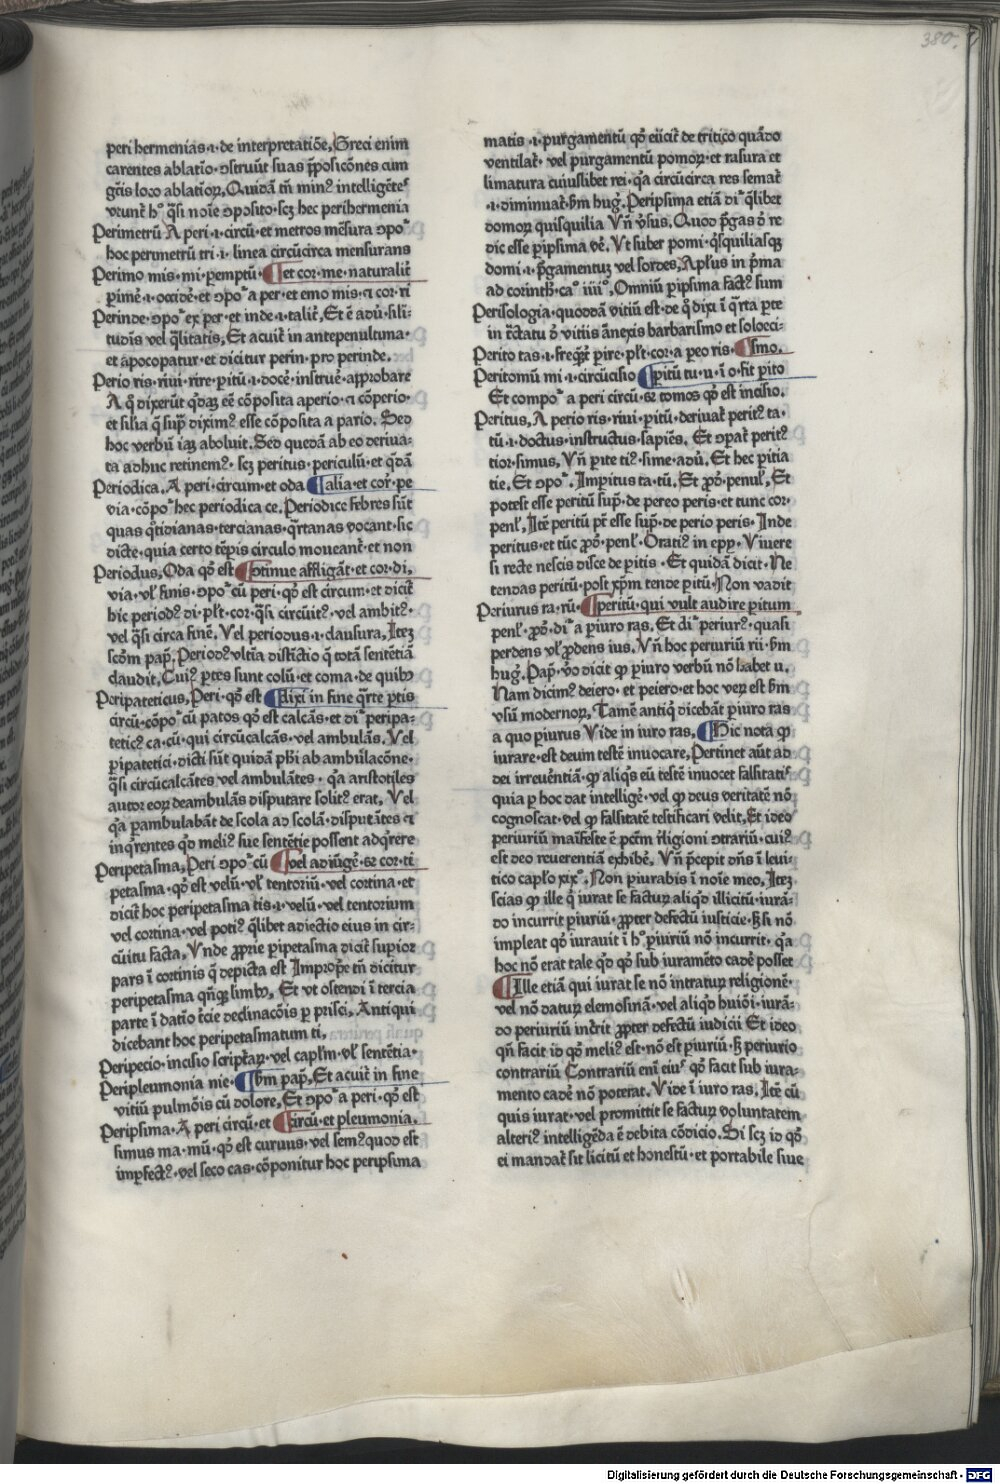 380.
peri hermenias·i·de interpretatiōe, Greci enim
carentes ablatiō·ɔstruūt suas p̄posicōnes cum
gn̄is loco ablatioꝝ, Quidā tn̄ min⁹ intelligētes
vtunt̄ h° q̄si noīe ɔposito·scꝫ hec perihermenia
Perimetrū A peri·i·circū·et metros mēsura ɔpoᵗ
hoc perimetrū tri·i·linea circūcirca mensurans
Perimo mis·mi·ꝑemptū· ¶et cor·me·naturalit̄
ꝑimē·i·occidē·et ɔpoᵗ a per·et emo mis·⁊ cor·ri
Perinde·ɔpoᵗ ex per·et inde·i·talit̄, Et ē adū·sili-
tudīs vel q̄litatis, Et acuit̄ in antepenultuma·
et apocopatur·et dicitur perin·pro perinde.
Perio ris·riui·rire·ꝑitū·i·docē·instruē·approbare
A q̄ dixerūt q̄daꝫ eē cōposita aperio·⁊ cōperio·
et silia q̄ suꝑ dixim⁹ esse cōposita a pario. Sed
hoc verbū iaꝫ aboluit. Sed quedā ab eo deriua-
ta adhuc retinem⁹·scꝫ peritus·periculū·et q̄dā
Periodica. A peri·circum·et oda ¶alia·et cor̄·pe
via·cōpoᵗ hec periodica ce. Periodice febres sūt
quas q̄tidianas·tercianas·q̄rtanas vocant·sic
dicte·quia certo tēpis circulo moueant̄·et non
Periodus, Oda qd̄ est ¶ɔtinue affligāt·et cor·di,
via·vl̄ finis·ɔpoᵗ cū peri·qd̄ est circum·et dicit̄
hic period⁹ di·pl̄t·cor·q̄si circūit⁹·vel ambit⁹·
vel q̄si circa finē. Vel periodus·i·clausura, Iteꝫ
scd̄m pap̄, Period⁹ vltīa distīctio q̄ totā sentētiā
claudit, Cui⁹ ꝑtes sunt colū·et coma·de quibꝫ
Peripateticus, Peri·qd̄ est ¶dixi in fine q̄rte ꝑtis
circū·cōpoᵗ cū patos qd̄ est calcās·et diᵗ peripa-
tetic⁹ ca·cū·qui circūcalcās·vel ambulās. Vel
ꝑipatetici·dicti sūt quidā ph̄i ab ambulacōne·
q̄si circūcalcātes vel ambulātes·q̄a aristotiles
autor eoꝝ deambulās disputare solit⁹ erat. Vel
q̄a ꝑambulabāt de scola ad scolā·disputātes ⁊
inq̄rentes qd̄ meli⁹ sue sentētie possent adq̄rere
Peripetasma, Peri ɔpoᵗ cū ¶vel adiūgē·⁊c cor·ti
petasma·qd̄ est velū·vl̄ tentoriū·vel cortina·et
dicit̄ hoc peripetasma tis·i·velū·vel tentorium
vel cortina·vel poti⁹ q̄libet adiectio eius in cir-
cūitu facta, Vnde ꝓprie ꝑipetasma dicit̄ suꝑior
pars ī cortinis q̄ depicta est Improp̄e tn̄ dicitur
peripetasma qn̄qꝫ limbꝫ, Et vt ostendi ī tercia
parte ī datiō t̄cie declinacōis ꝑ prisci, Antiqui
dicebant hoc peripetasmatum ti,
Peripecio·incisio scriptaꝝ·vel capl̄m·vl̄ sentētia·
Peripleumonia nie· ¶ẜm pap̄, Et acuit̄ in fine
vitiū pulmōis cū dolore, Et ɔpoᵗ a peri·qd̄ est
Peripsima·A peri circū·et ¶circū·et pleumonia.
simus ma·mū·qd̄ est curuus·vel sem⁹ quod est
imꝑfect⁹·vel seco cas·cōponitur hoc peripsima
matis·i·purgamentū qd̄ eiicit̄ de tritico quādo
ventilat̄·vel purgamentū pomoꝝ·et rasura et
limatura cuiuslibet rei·q̄a circūcirca res semat̄
·i·diminuat̄·ẜm huḡ. Peripsima etiā diᵗ q̄libet
domoꝝ quisquilia Vn̄ v̄sus. Quod p̄gas d̄ re
dic esse ꝑipsima vē. Vt suber pomi·q̄squiliasqꝫ
domi·i·p̄gamentuꝫ vel sordes, Ap̄lus in p̄ma
ad corinth̄·ca° iiii°, Omniū ꝑipsima fact⁹ sum
Perisologia·quoddā vitiū est·de q̄ dixi ī q̄rta ꝑte
in t̄ctatu d̄ vitiis ānexis barbarismo et solocci-
Perito tas·i·freq̄r̄ ꝑire·pl̄t·cor·a peo ris· ¶smo.
Peritomū mi·i·circūcisio ¶ꝑitū tu·u·ī o·fit ꝑito
Et compoᵗ a peri circū·⁊ tomos qd̄ est incisio.
Peritus, A perio ris·riui·ꝑitū·deriuat̄ perit⁹ ta·
tū·i·doctus·instructus·sapiēs. Et ɔpat̄ perit⁹
tior·simus. Vn̄ ꝑite ti⁹·sime·adū. Et hec ꝑitia
tie. Et ɔpoᵗ. Imꝑitus ta·tū. Et ꝓd̄·penul̄, Et
potest esse peritū suꝑ·de pereo peris·et tunc cor·
penl̄, Itē peritū pt̄ esse suꝑ·de perio peris·Inde
peritus·et tūc ꝓd̄·penl̄·Orati⁹ in epꝑ·Viuere
si recte nescis disce de ꝑitis·Et quidā dicit·Ne
tendas peritū·post xp̄m tende ꝑitū·Non vadit
Periurus ra·rū· ¶peritū·qui vult audire ꝑitum
penl̄·ꝓd̄·diᵗ a ꝑiuro ras. Et diᵗ periur⁹·quasi
perdens vl̄ ꝓdens ius. Vn̄ hoc periuriū rii·ẜm
huḡ. Pap̄·v̄o dicit ꝙ ꝑiuro verbū nō habet u.
Nam dicim⁹ deiero·et peiero·et hoc veꝝ est ẜm
vsū modernoꝝ, Tamē antiq̄ dicebāt ꝑiuro ras
a quo ꝑiurus Vide in iuro ras, ¶Hic nota ꝙ
iurare·est deum testē inuocare, Pertinet aūt ad
dei irreuētiā·ꝙ aliq̄s eū testē inuocet falsitatis
quia ꝑ hoc dat intelligē·vel ꝙ deus veritatē nō
cognoscat·vel ꝙ falsitatē testificari velit, Et ideo
periuriū maīfeste ē pctm̄ r̄ligioni ɔtrariū·cui⁹
est deo reuerentiā exhibē. Vn̄ p̄cepit dn̄s ī leui-
tico capl̄o xix°. Non ꝑiurabis ī noīe meo, Iteꝫ
scias ꝙ ille q̄ iurat se factuꝝ aliqd̄ illicitū·iurā-
do incurrit ꝑiuriū·ꝓpter defectū iusticie·ꝫ si nō
impleat qd̄ iurauit ī h° ꝑiuriū nō incurrit·q̄a
hoc nō erat tale qd̄ qd̄ sub iuramēto cadē posset
¶Ille etiā qui iurat se nō intratuꝝ religionē·
vel nō datuꝝ elemosinā·vel aliqd̄ huiōi·iurā-
do periuriū incr̄it ꝓpter defectū iudicii Et ideo
qn̄ facit id qd̄ meli⁹ est·nō est ꝑiuriū·ꝫ periurio
contrariū Contrariū enī eiᵘˢ qd̄ facit sub iura-
mento cadē nō poterat. Vide ī iuro ras, Itē cū
quis iurat·vel promittit se factuꝝ voluntatem
alteri⁹ intelligēda ē debita cōdicio. Si scꝫ id qd̄
ei mandat̄ sit licitū et honestū·et portabile siue
Digitalisierung gefördert durch die Deutsche Forschungsgemeinschaft - DFG